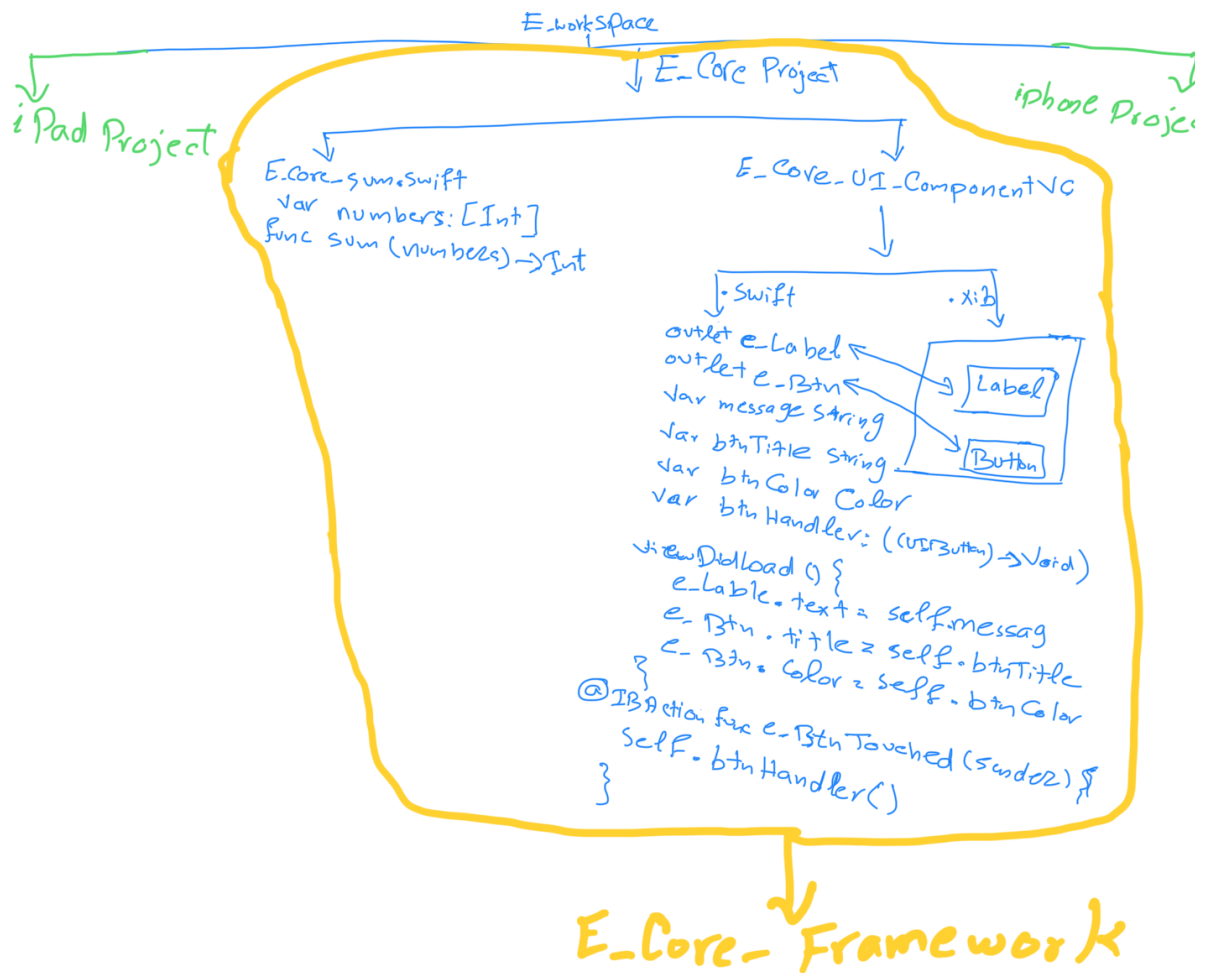 E_workSpace
E_Core Project
iPad Project
iphone Projec
E_Core_sum.swift
var numbers: [Int]
func sum (numbers) → Int
E_Core_UI_ComponentVC
.swift
.xib
outlet e_Label
outlet e_Btn
Var message string
Var btnTitle string
Var btnColor Color
Var btnHandler: ((UIButton) → Void)
Label
Button
viewDidload () {
e_Lable.text = self.messag
e_Btn.title = self.btnTitle
e_Btn.Color = self.btnColor
}
@IBAction func e_BtnTouched (sender) {
Self.btnHandler()
}
E_Core_Framework